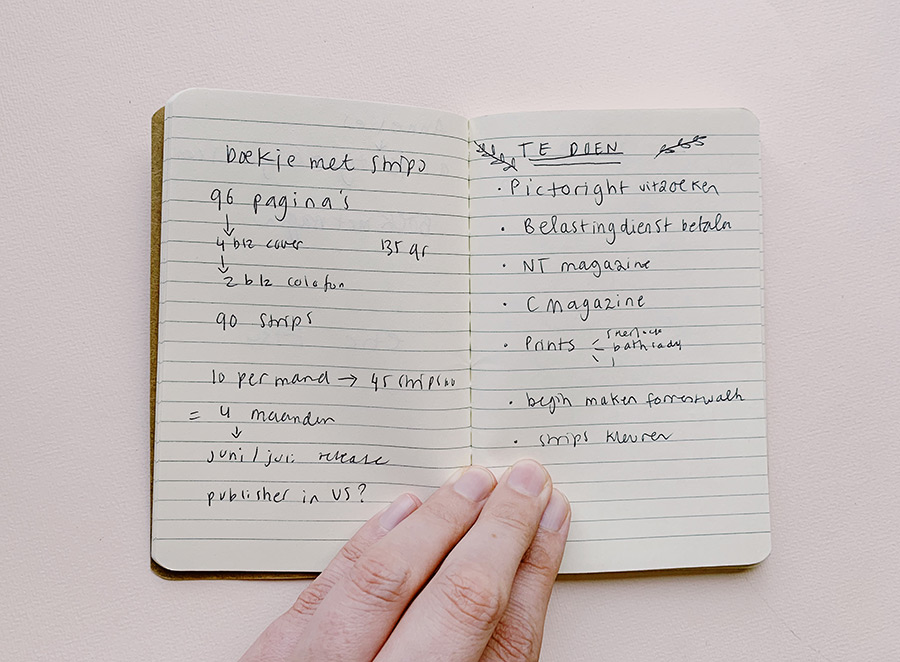 boekje met strips
96 pagina's
↓
4 blz cover 135 gr
↓
2 blz colofon
90 strips
10 per mand → 45 strips
= 4 maanden
↓
juni / juli release
publisher in US?
TE DOEN
• Pictoright uitzoeken
• Belastingdienst betalen
• NT magazine
• C Magazine
• Prints
bathlady
• begin maken forrestwalk
• strips kleuren